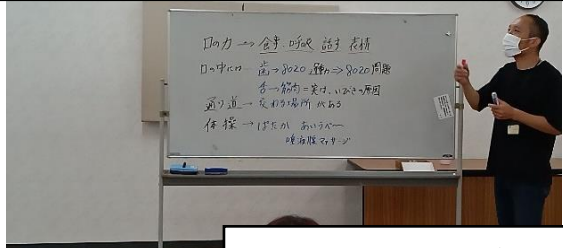 口の力 → 食事、呼吸 話す 表情
口の中には― 歯→8020運動⇒8020問題
舌→筋肉=実は、いびきの原因
通り道→交わる場所がある
体操→ぱたか あいうべー
唾液腺マッサージ